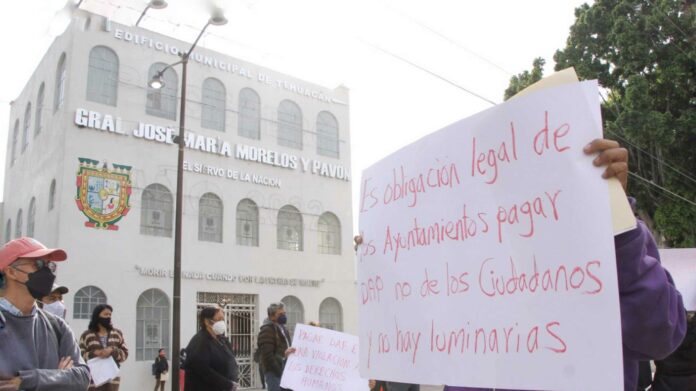 EDIFICIO MUNICIPAL DE TEHUACAN
GRAL. JOSÉ MARÍA MORELOS Y PAVÓN
EL SIERVO DE LA NACION
"MORIR ES NADA CUANDO POR LA PATRIA SE MUERE"
Es obligación legal de
los Ayuntamientos pagar
DAP no de los Ciudadanos
y no hay luminarias
PAGAR DAP ES
UNA VIOLACION A
LOS DERECHOS
HUMANOS